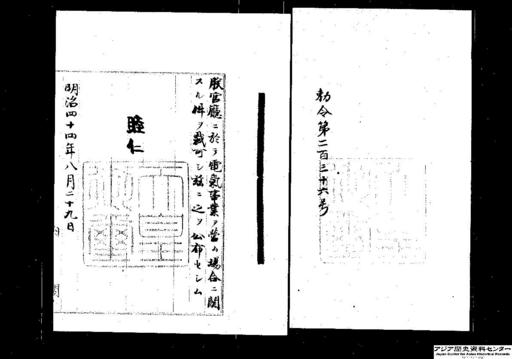 勅令第二百三十六号
朕官廳ニ於テ電氣事業ヲ營ム場合ニ関
スル件ヲ裁可シ茲ニ之ヲ公布セシム
睦仁
天皇御璽
明治四十四年八月二十九日
内閣
アジア歴史資料センター
Japan Center for Asian Historical Records